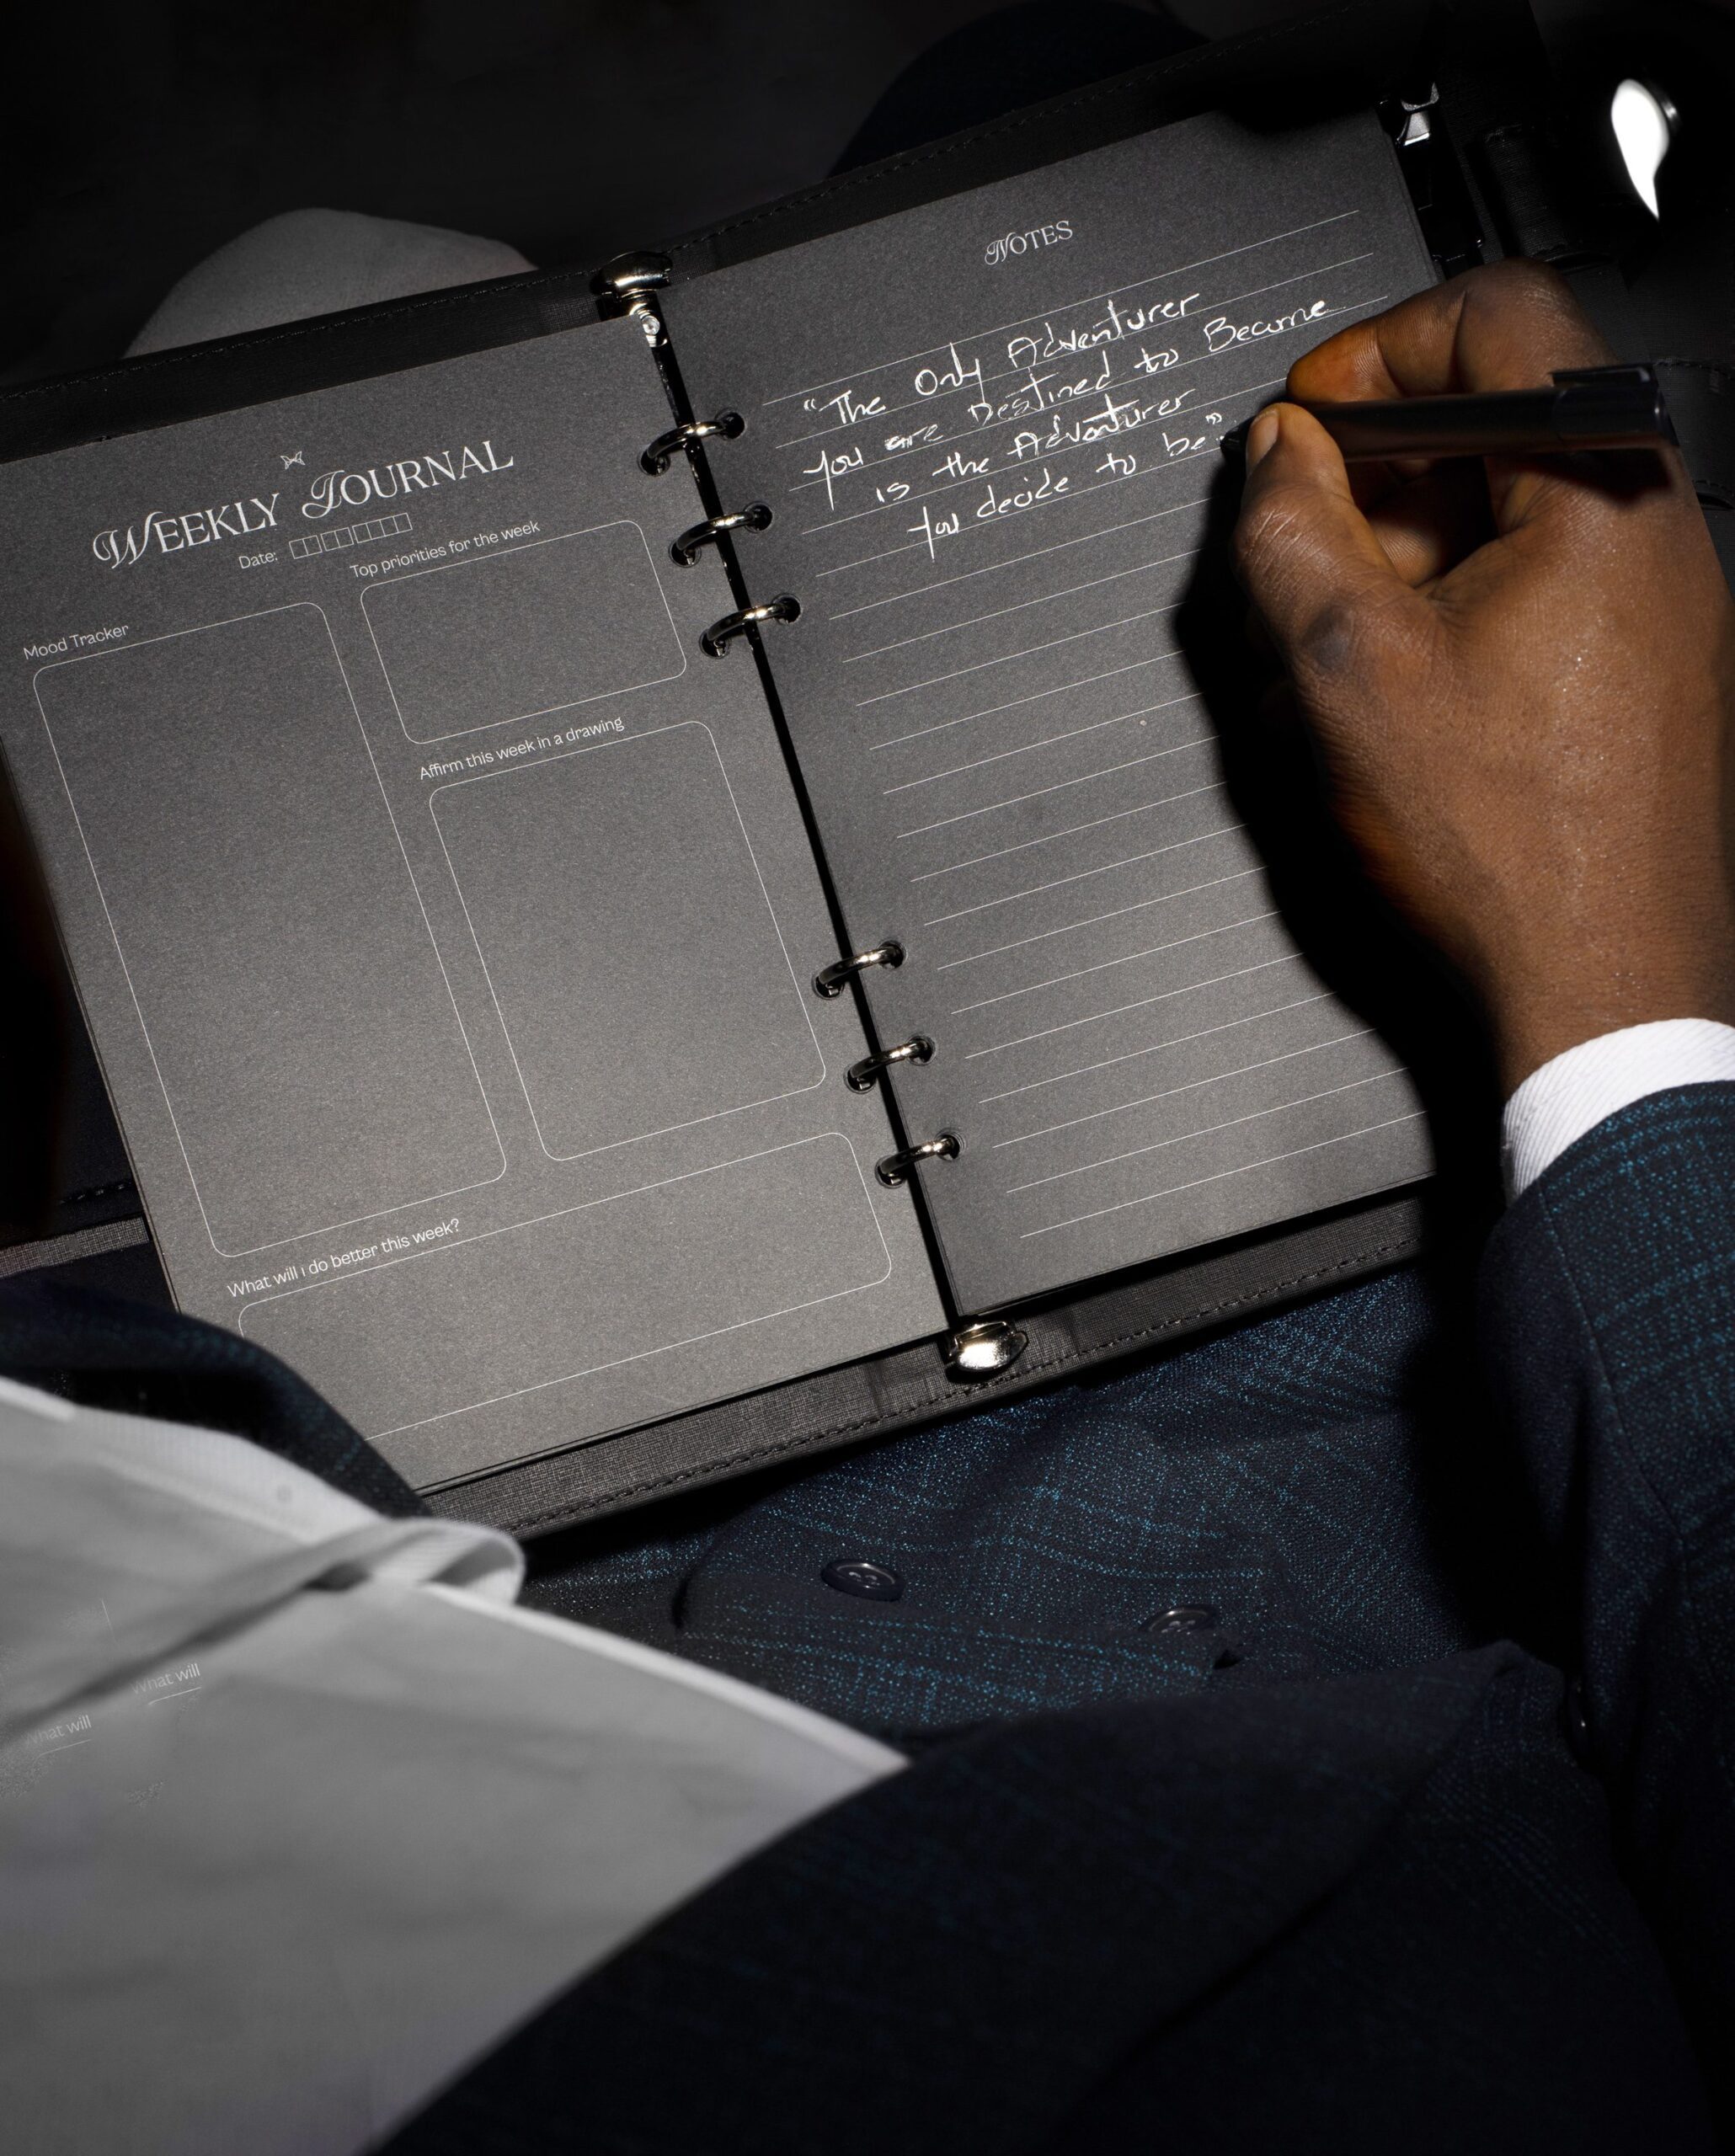 WEEKLY JOURNAL
Date:
Mood Tracker
Top priorities for the week
Affirm this week in a drawing
What will i do better this week?
NOTES
"The Only Adventurer
You are Destined to Become
is the Adventurer
You decide to be"
What will
What will